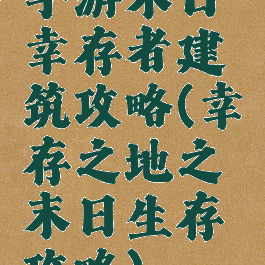 手游末日
幸存者建
筑攻略(幸
存之地之
末日生存
攻略)